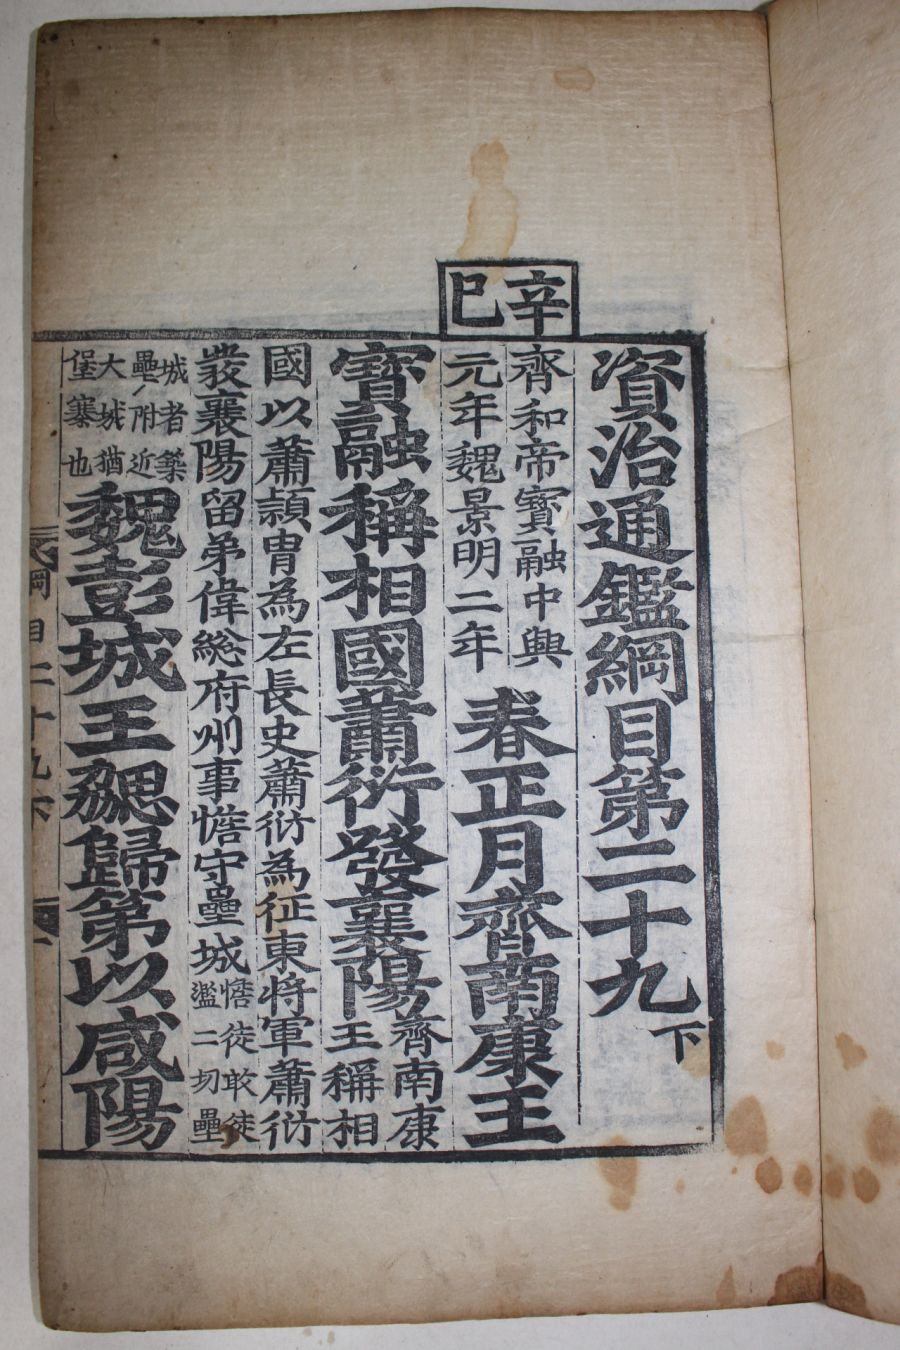 辛巳
資治通鑑綱目第二十九下
齊和帝寶融中興
元年魏景明二年
春正月齊南康王
寶融稱相國蕭衍發襄陽
齊南康
王稱相
國以蕭穎胄為左長史蕭衍為征東將軍蕭衍
發襄陽留弟偉總府州事憺守壘城
憺徒敢徒
濫二切壘
城者築
壘附近
大城猶
堡寨也
魏彭城王勰歸第以咸陽
綱目二十九下